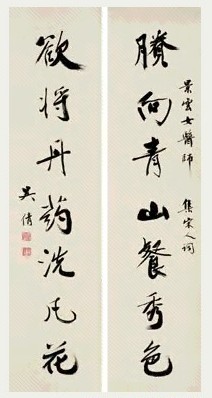 賸向青山餐秀色
景雲女醫師 集宋人词
欲将丹药洗凡花
吴倩